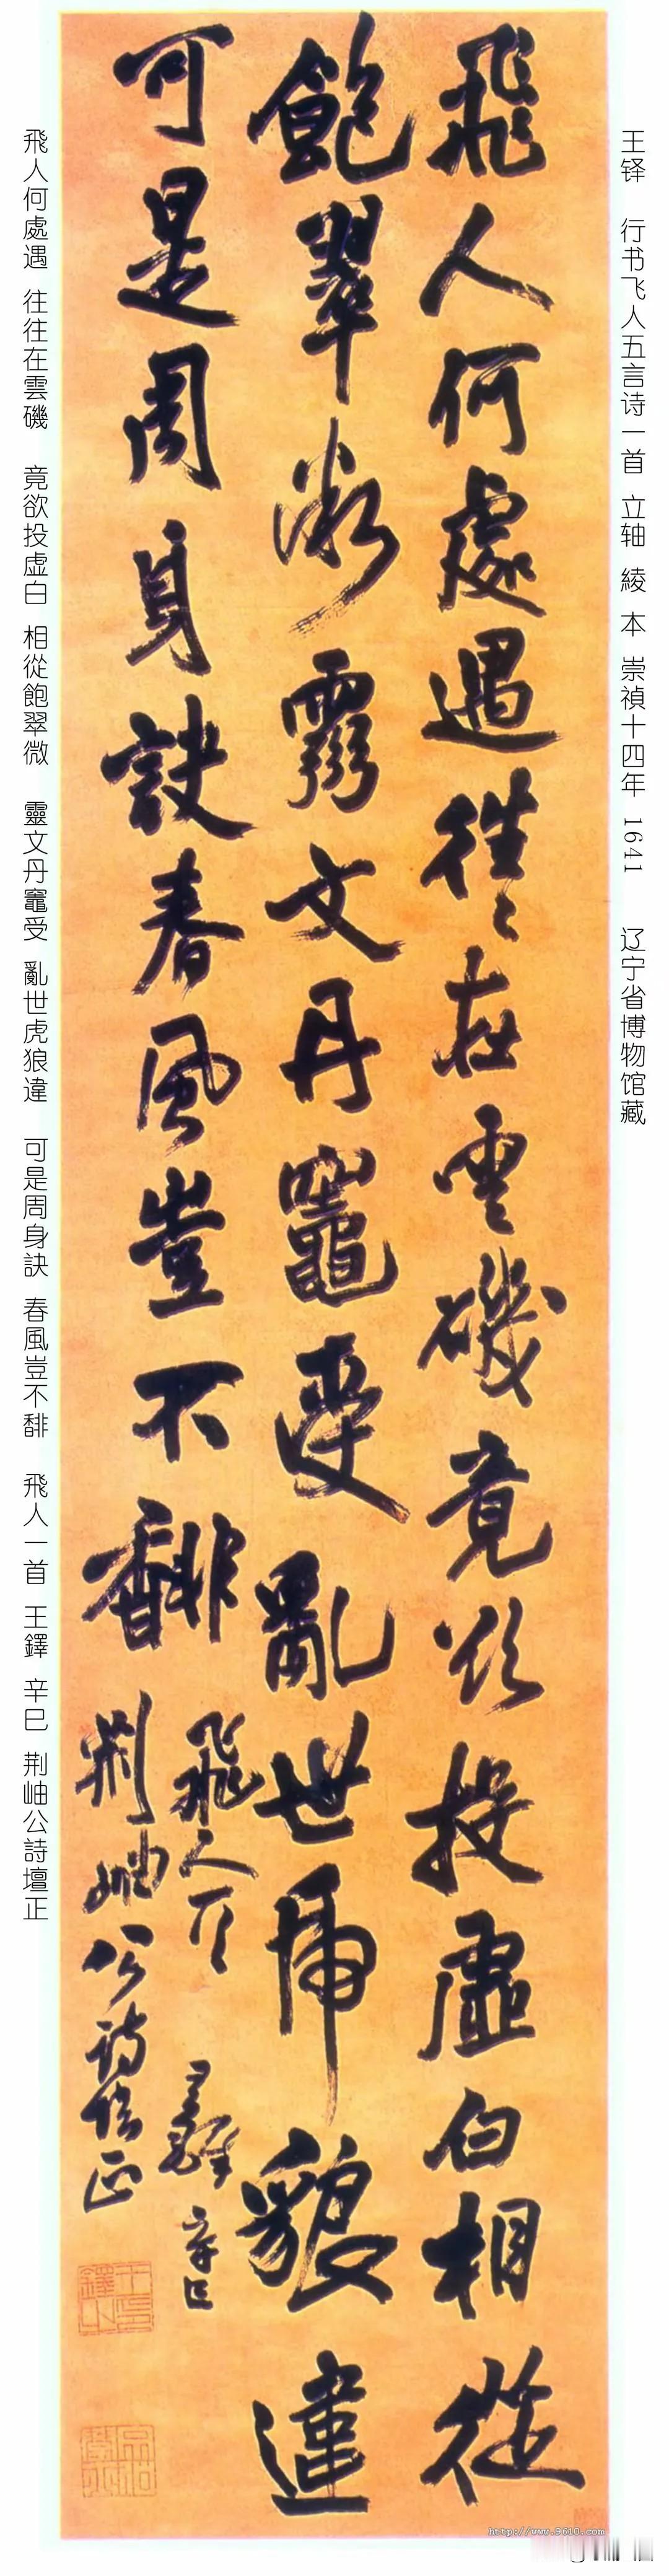 王铎 行书飞人五言诗一首 立轴 綾 本 崇禎十四年 1641 辽宁省博物馆藏
飛人何處遇往〻在雲磯竟欲投虛白相從
飽翠微靈文丹竈受亂世虎貌違
可是周身訣春風豈不馡
飛人一首 王鐸 辛巳
荆岫公詩壇正
飛人何處遇 往往在雲磯 竟欲投虚白 相從飽翠微 靈文丹竈受 亂世虎狼違 可是周身訣 春風豈不馡 飛人一首 王鐸 辛巳 荆岫公詩壇正
http://www.9610.com